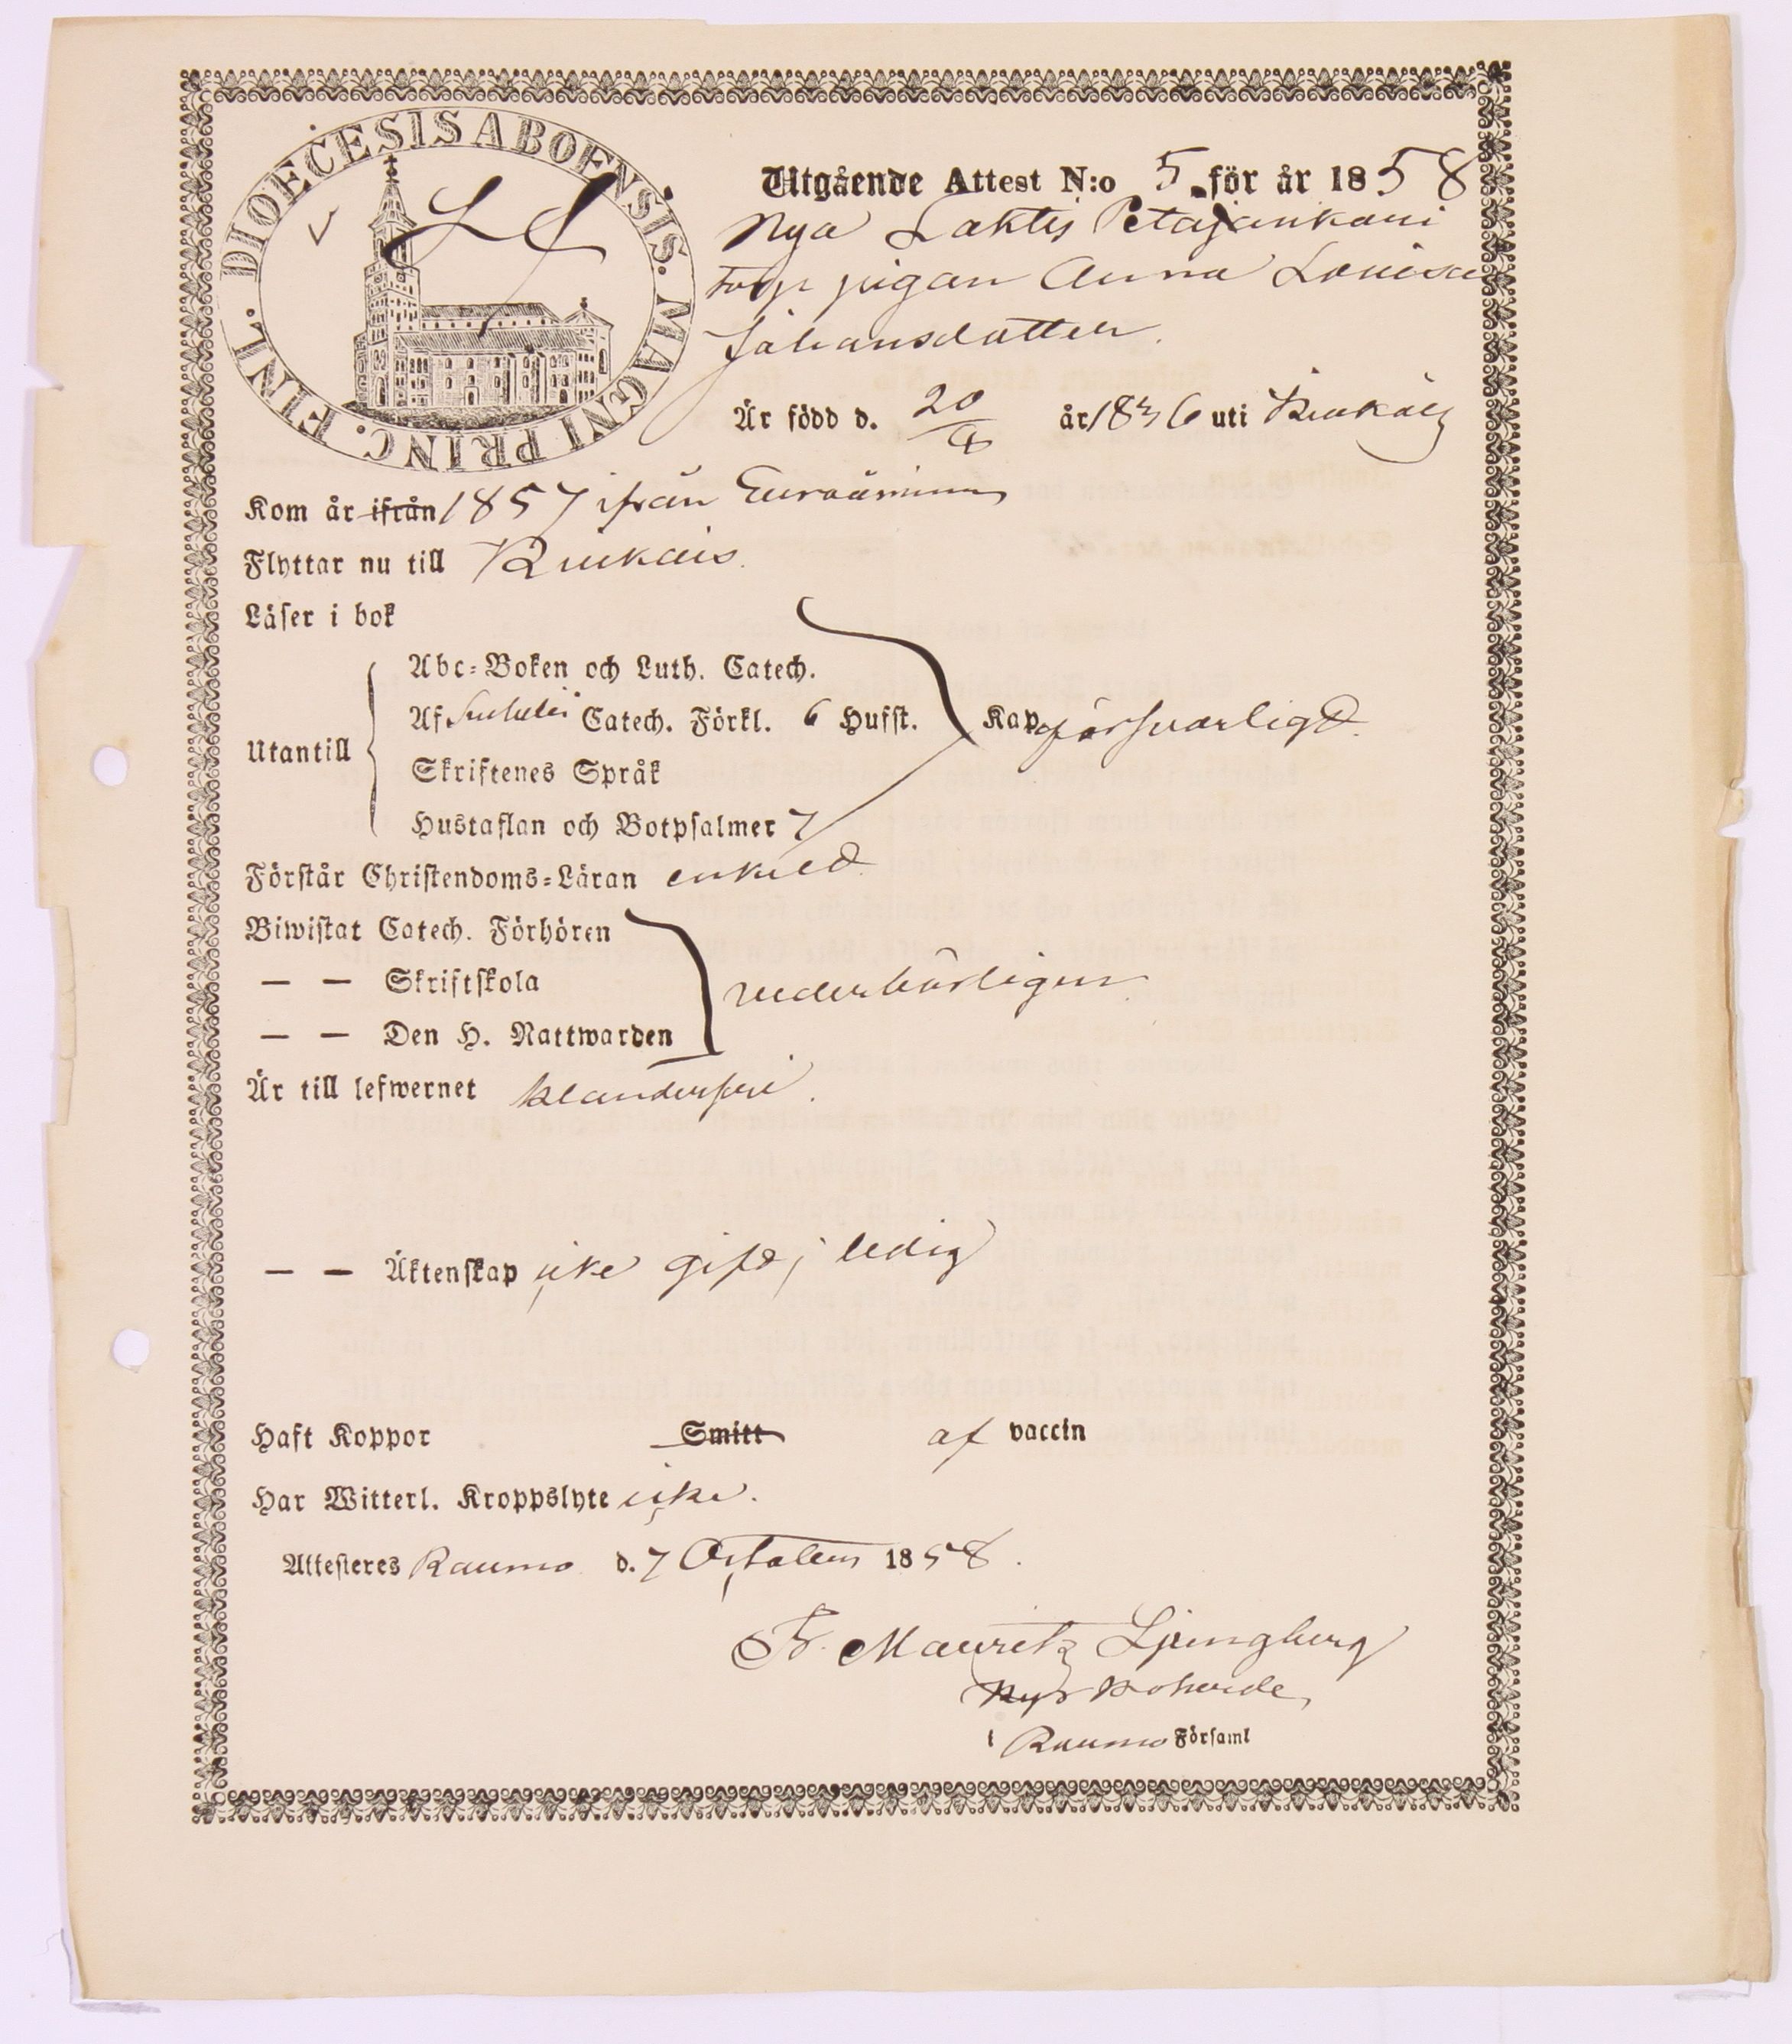 DIOECESIS ABOENSIS. MAGNI PRINC. FINL.
Utgående Attest N:o 5. för år 1858
Nya Laktis Petajankani
Torp pigan Anna Lovisa
Johansdotter.
Är född d. 20/8 år 1836 uti Kiukais
Kom år ifrån 1857 ifrån Euraåminne
Flyttar nu till Kiukais.
Läser i bok
Abc=Boken och Luth. Catech.
Utantill Af Catech. Förkl. 6 Hufst. Kap försvarligt.
Skriftenes Språk
Hustaflan och Botpsalmer 7
Förstår Christendoms=Läran enkelt
Biwistat Catech. Förhören
— — Skriftskola vederbörligen
— — Den H. Nattwarden
Är till lefwernet klanderfri.
— — Äktenskap icke gift, ledig
Haft Koppor Smitt af vaccin
Har Witterl. Kroppslyte icke.
Attesteres Raumo d. 7 October 1858.
Fr. Mauritz Ljungberg
Kyrkoherde
i Raumo Församl